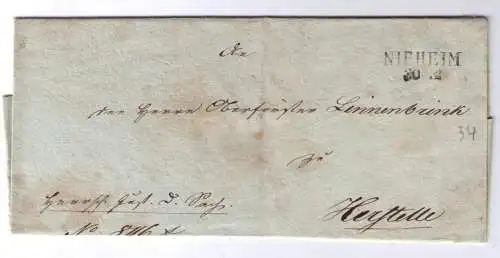 An
NIEHEIM
30 12
den Herrn Oberförster Linnenbrink
34
zu
Herrsch. Just. D. Sach.
Herstelle
No 846